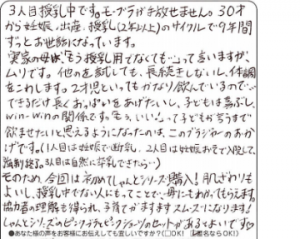 3人目授乳中です。モーブラが手放せません。30才
から妊娠、出産、授乳(2年以上)のサイクルで9年間
ずっとお世話になっています。
実家の母は「もう授乳用でなくても…」って言いますが、
ムリです。他のを試しても、長続きしないし、体調
をこわします。2才児といってもかなり飲んでいまので…
できるだけ長くおっぱいをあげたいし、子どもは喜ぶし、
win-winの関係です。「もう、いい」って子どもが言うまで
飲ませたいと思えるようになったのは、このブラジャーのおか
げです。(1人目は妊娠で断乳、2人目は妊娠お宅で入院して、
強制終了。3人目は自然に卒乳できたら…)
そのため、今回は初めてしゃんとシリーズ購入!肌ざわりも
よいし、授乳中でない人にもってことで…母にもわかってもらえます。
協力者の理解も得られ、子育てがますますスムーズになります!
しゃんとシリーズのピンクイチゴとピンクジュシーのセットがあるとよいです
●あなた様の声をお客様にお伝えしても宜しいですか?(□OK! □匿名ならOK!)